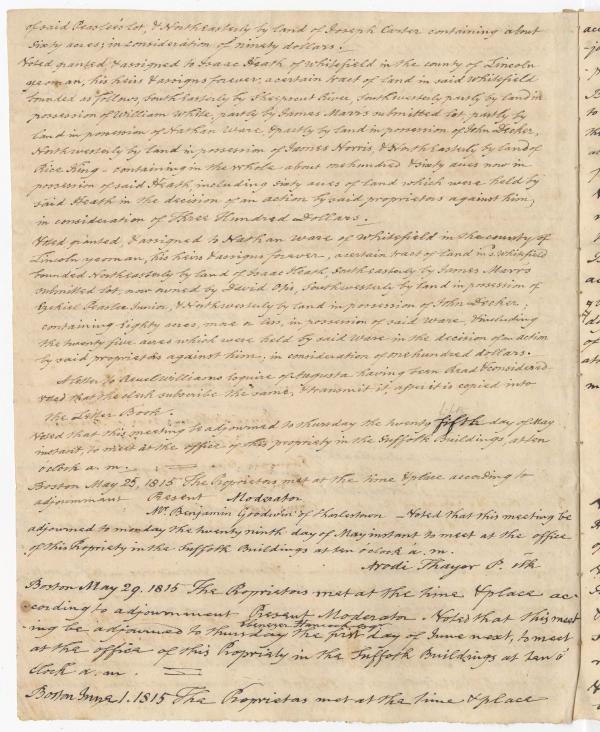 of said Peaslee's lot, & Northeasterly by land of Joseph Carter containing about
sixty acres, in consideration of ninety dollars.
Voted granted, & assigned to Isaac Heath of Whitefield in the county of Lincoln
yeoman, his heirs & assigns forever, a certain tract of land in said Whitefield
bounded as follows, Southeasterly by Sheepscut River, Southwesterly partly by land in
possession of William White, partly by James Marr's submitted lot, partly by
land in possession of Nathan Ware, & partly by land in possession of John Decker,
Northwesterly by land in possession of James Norris, & Northeasterly by land of
Rice King – containing in the whole about one hundred & sixty acres now in
possession of said Heath, including sixty acres of land which were held by
said Heath in the decision of an action by said proprietors against him,
in consideration of Three Hundred Dollars.
Voted, granted, & assigned to Nathan Ware of Whitefield in the county of
Lincoln yeoman, his heirs & assigns forever, a certain tract of land in s Whitefield
bounded Northeasterly by land of Isaac Heath, Southeasterly by James Marrs
submitted lot, now owned by David Otis, Southwesterly by land in possession of
Ezekiel Peaslee Junior, & Northwesterly by land in possession of John Decker;
containing Eighty acres, more or less, in possession of said Ware, & including
the twenty five acres which were held by said Ware in the decision of an action
by said proprietors against him, in consideration of one hundred dollars.
A letter to Reuel Williams Esquire of Augusta having been Read & considered
voted that the clerk subscribe the same, & transmit it, after it is copied into
the Letter Book.
Voted that this meeting be adjourned to thursday the twenty fifth day of May
instant, to meet at the office of this propriety in the Suffolk Buildings, at ten
o'clock a. m.
Boston May 25, 1815 The Proprietors met at the time & place according to
adjournment Present Moderator
Mr. Benjamin Goodwin of Charlestown – Voted that this meeting be
adjourned to monday the twenty ninth day of May instant to meet at the office
of this Propriety in the Suffolk Buildings at ten o'clock a. m.
Arodi Thayer P. Clk
Boston May 29. 1815 The Proprietors met at the time & place ac-
cording to adjournment Present Moderator Voted that this meet
Ebenezer Hancock Esqr
ing be adjourned to thursday the first day of June next, to meet
at the office of this Propriety in the Suffolk Buildings at ten o'
clock a. m.
Boston June 1. 1815 The Proprietors met at the time & place